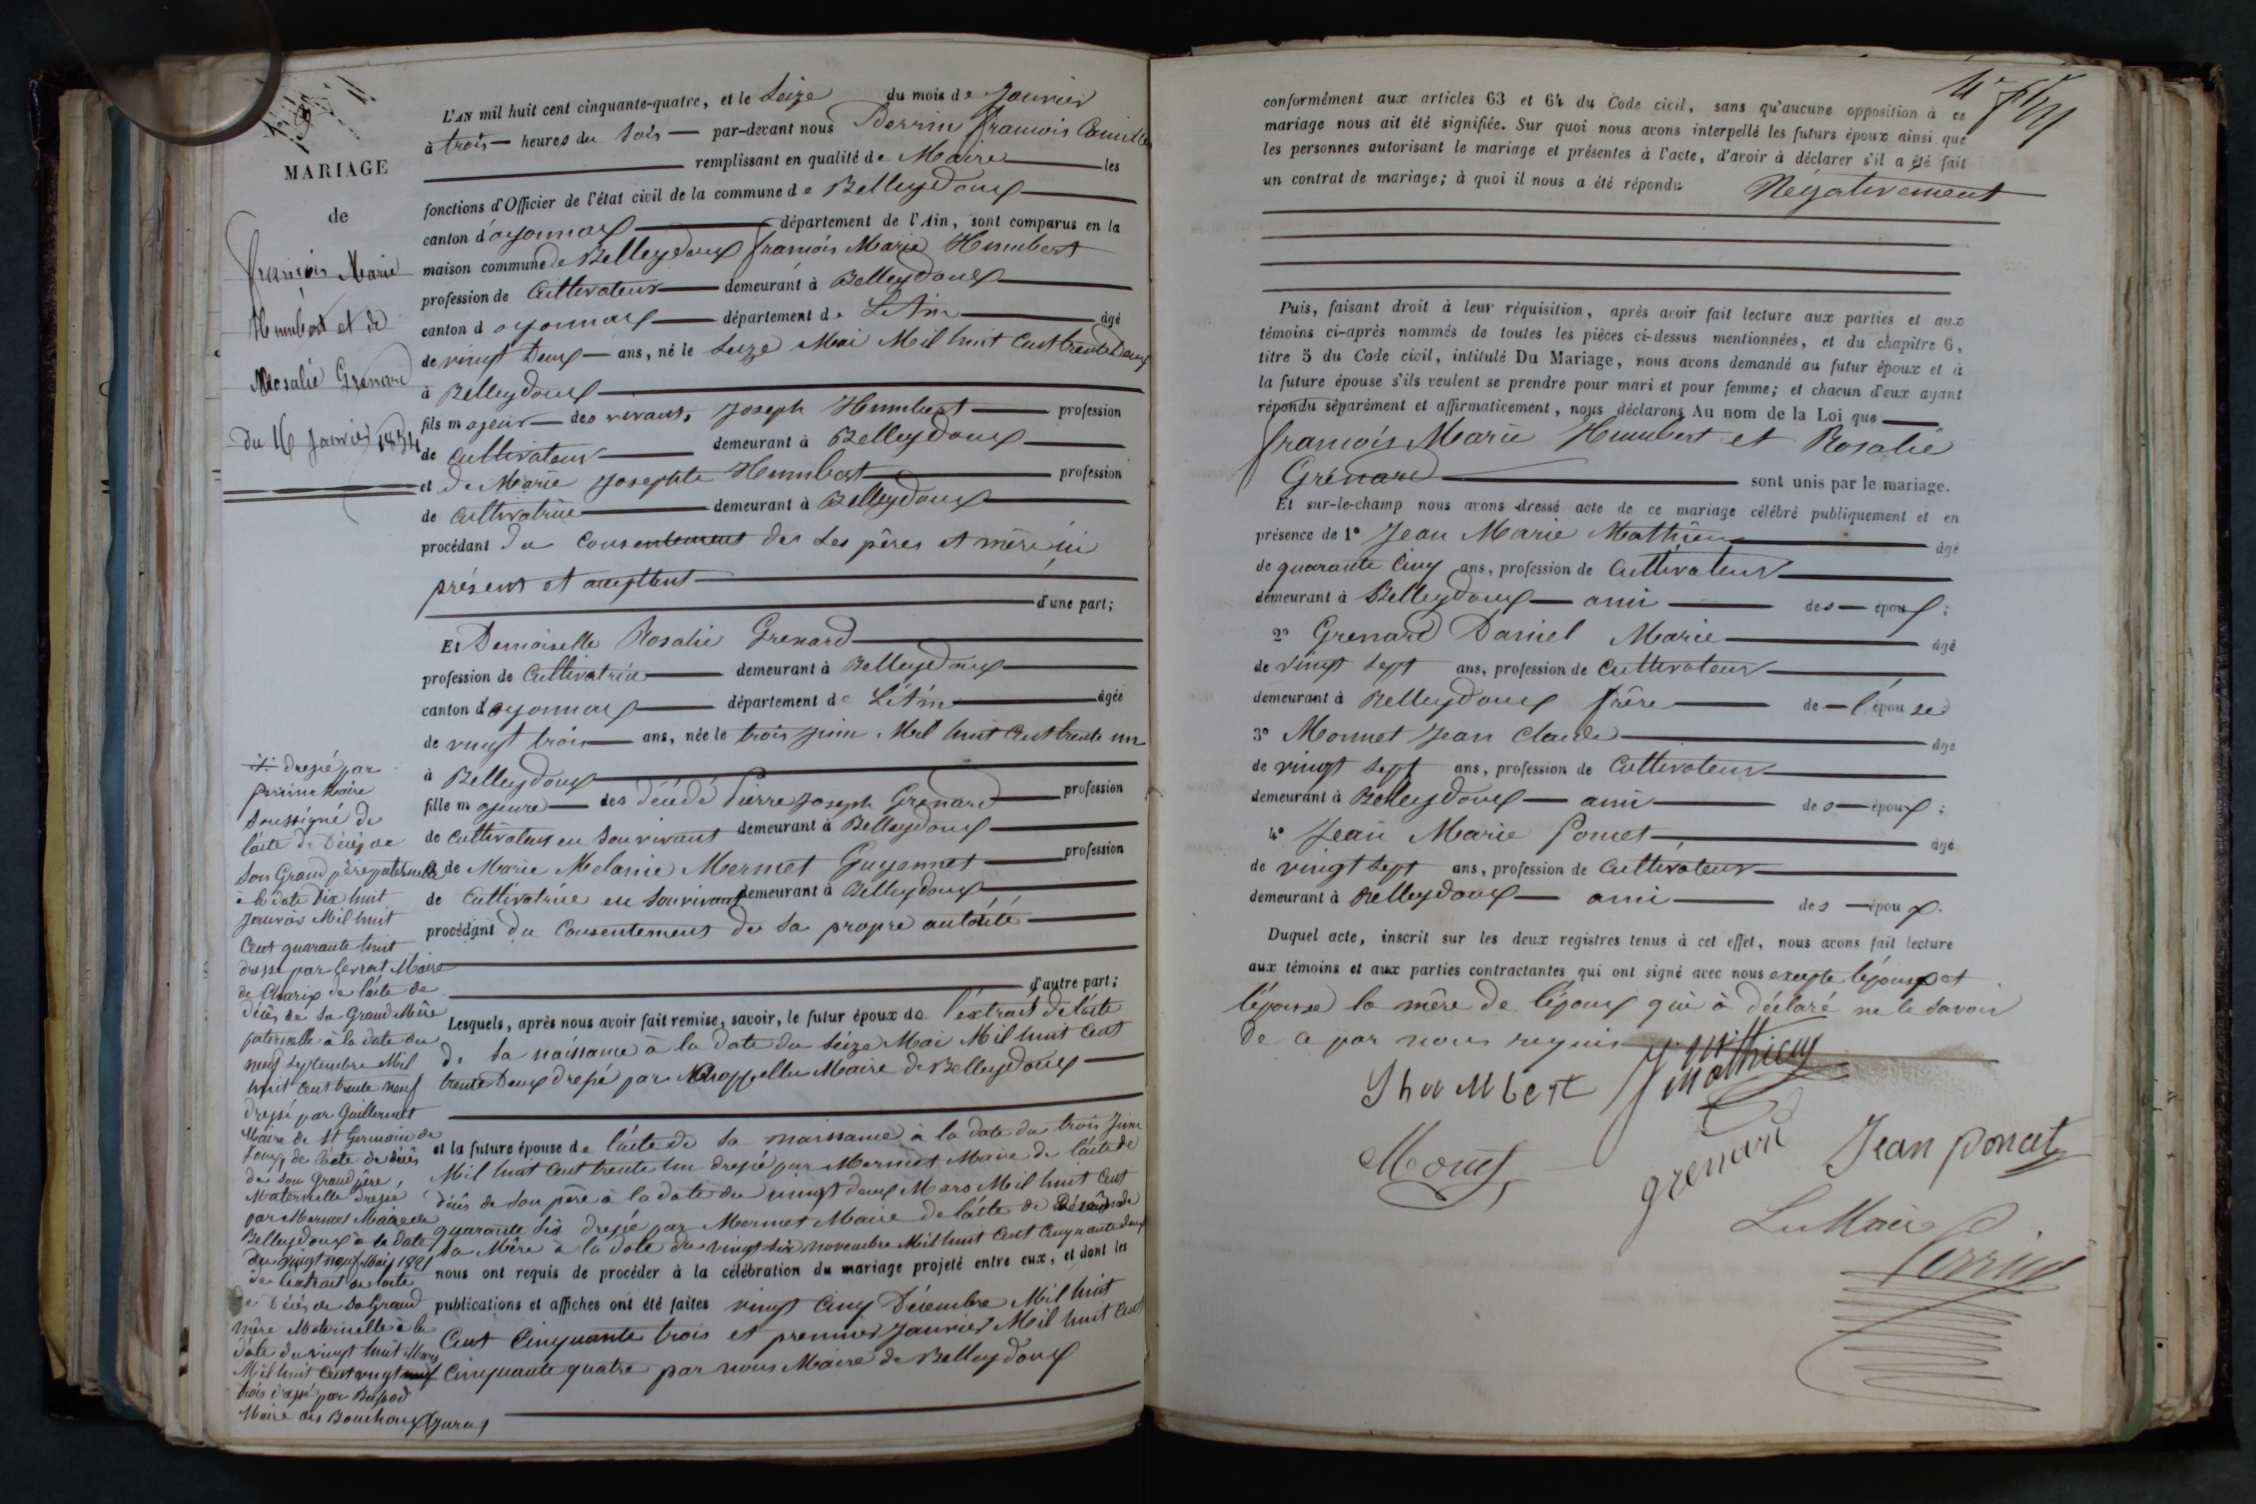 MARIAGE
de
françois Marie
Humbert et de
Rosalie Grenard
du 16 Janvier 1854
L'AN mil huit cent cinquante-quatre, et le Seize du mois de Janvier
à trois heures du Soir par-devant nous Perrin françois Camille
remplissant en qualité de Maire les
fonctions d'Officier de l'état civil de la commune de Belleydoux
canton d'oyonnax département de l'Ain, sont comparus en la
maison commune de Belleydoux françois Marie Humbert
profession de Cultivateur demeurant à Belleydoux
canton d oyonnax département de L'Ain âgé
de vingt Deux ans, né le Seize Mai Mil huit Cent trente Deux
à Belleydoux
fils majeur des vivants Joseph Humbert profession
de Cultivateur demeurant à Belleydoux
et de Marie Josephte Humbert profession
de Cultivatrice demeurant à Belleydoux
procédant du Consentement des Ses pères et mère ici
présent et acceptent
d'une part;
Et Demoiselle Rosalie Grenard
profession de Cultivatrice demeurant à Belleydoux
canton d oyonnax département de L'Ain âgée
de vingt trois ans, née le trois Juin Mil huit Cent trente un
à Belleydoux
fille majeure des décédé Pierre Joseph Grenard profession
de Cultivateur en Son vivant demeurant à Belleydoux
et de Marie Melanie Mermet Guyennet profession
de Cultivatrice en Son vivant demeurant à Belleydoux
procédant du Consentement de Sa propre autorité
d'autre part;
Lesquels, après nous avoir fait remise, savoir, le futur époux de l'extrait de l'acte
de Sa naissance à la date du Seize Mai Mil huit Cent
trente Deux dressé par Chappellu Maire de Belleydoux
et la future épouse de l'acte de Sa naissance à la date du trois Juin
Mil huit Cent trente un dressé par Mermet Maire de l'acte de
décès de Son père à la date du vingt deux Mars Mil huit Cent
quarante Six dressé par Mermet Maire de l'acte de Décès de
Sa Mère à la date du vingt Six novembre Mil huit Cent Cinquante deux
nous ont requis de procéder à la célébration du mariage projeté entre eux, et dont les
publications et affiches ont été faites vingt Cinq Décembre Mil huit
Cent Cinquante trois et premier Janvier Mil huit Cent
Cinquante quatre par nous Maire de Belleydoux
dressé par
Perrin Maire
Soussigné de
l'acte de Décès de
Son Grand père paternelle
à la date Dix huit
Janvier Mil huit
Cent quarante huit
dressé par Maire
de Charix de l'acte de
décès de Sa Grand Mère
paternelle à la date du
neuf Septembre Mil
huit Cent trente neuf
dressé par Guillermet
Maire de St Germain de
Joux de l'acte de décès
de Son Grand père
Maternelle dressé
par Mermet Maire de
Belleydoux à la date
du vingt neuf Mars 1821
de l'extrait de l'acte
de Décès de Sa Grand
mère Maternelle à la
date du vingt huit Mars
Mil huit Cent vingt
trois dressé par
Maire des Bouchoux Jura
conformément aux articles 63 et 64 du Code civil, sans qu'aucune opposition à ce
mariage nous ait été signifiée. Sur quoi nous avons interpellé les futurs époux ainsi que
les personnes autorisant le mariage et présentes à l'acte, d'avoir à déclarer s'il a été fait
un contrat de mariage; à quoi il nous a été répondu Négativement
Puis, faisant droit à leur réquisition, après avoir fait lecture aux parties et aux
témoins ci-après nommés de toutes les pièces ci-dessus mentionnées, et du chapitre 6,
titre 5 du Code civil, intitulé Du Mariage, nous avons demandé au futur époux et à
la future épouse s'ils veulent se prendre pour mari et pour femme; et chacun d'eux ayant
répondu séparément et affirmativement, nous déclarons Au nom de la Loi que
françois Marie Humbert et Rosalie
Grenard sont unis par le mariage.
Et sur-le-champ nous avons dressé acte de ce mariage célébré publiquement et en
présence de 1° Jean Marie Mathieu âgé
de quarante Cinq ans, profession de Cultivateur
demeurant à Belleydoux ami des époux;
2° Grenard Daniel Marie âgé
de vingt Sept ans, profession de Cultivateur
demeurant à Belleydoux frère de l'épouse
3° Monnet Jean Claude âgé
de vingt Sept ans, profession de Cultivateur
demeurant à Belleydoux ami des époux;
4° Jean Marie Poncet âgé
de vingt Sept ans, profession de Cultivateur
demeurant à Belleydoux ami des époux.
Duquel acte, inscrit sur les deux registres tenus à cet effet, nous avons fait lecture
aux témoins et aux parties contractantes qui ont signé avec nous excepte l'époux et
l'épouse la mère de l'époux qui à déclaré ne le Savoir
de ce par nous requis
J humbert J M Mathieu
grenard Jean poncet
Le Maire
Perrin